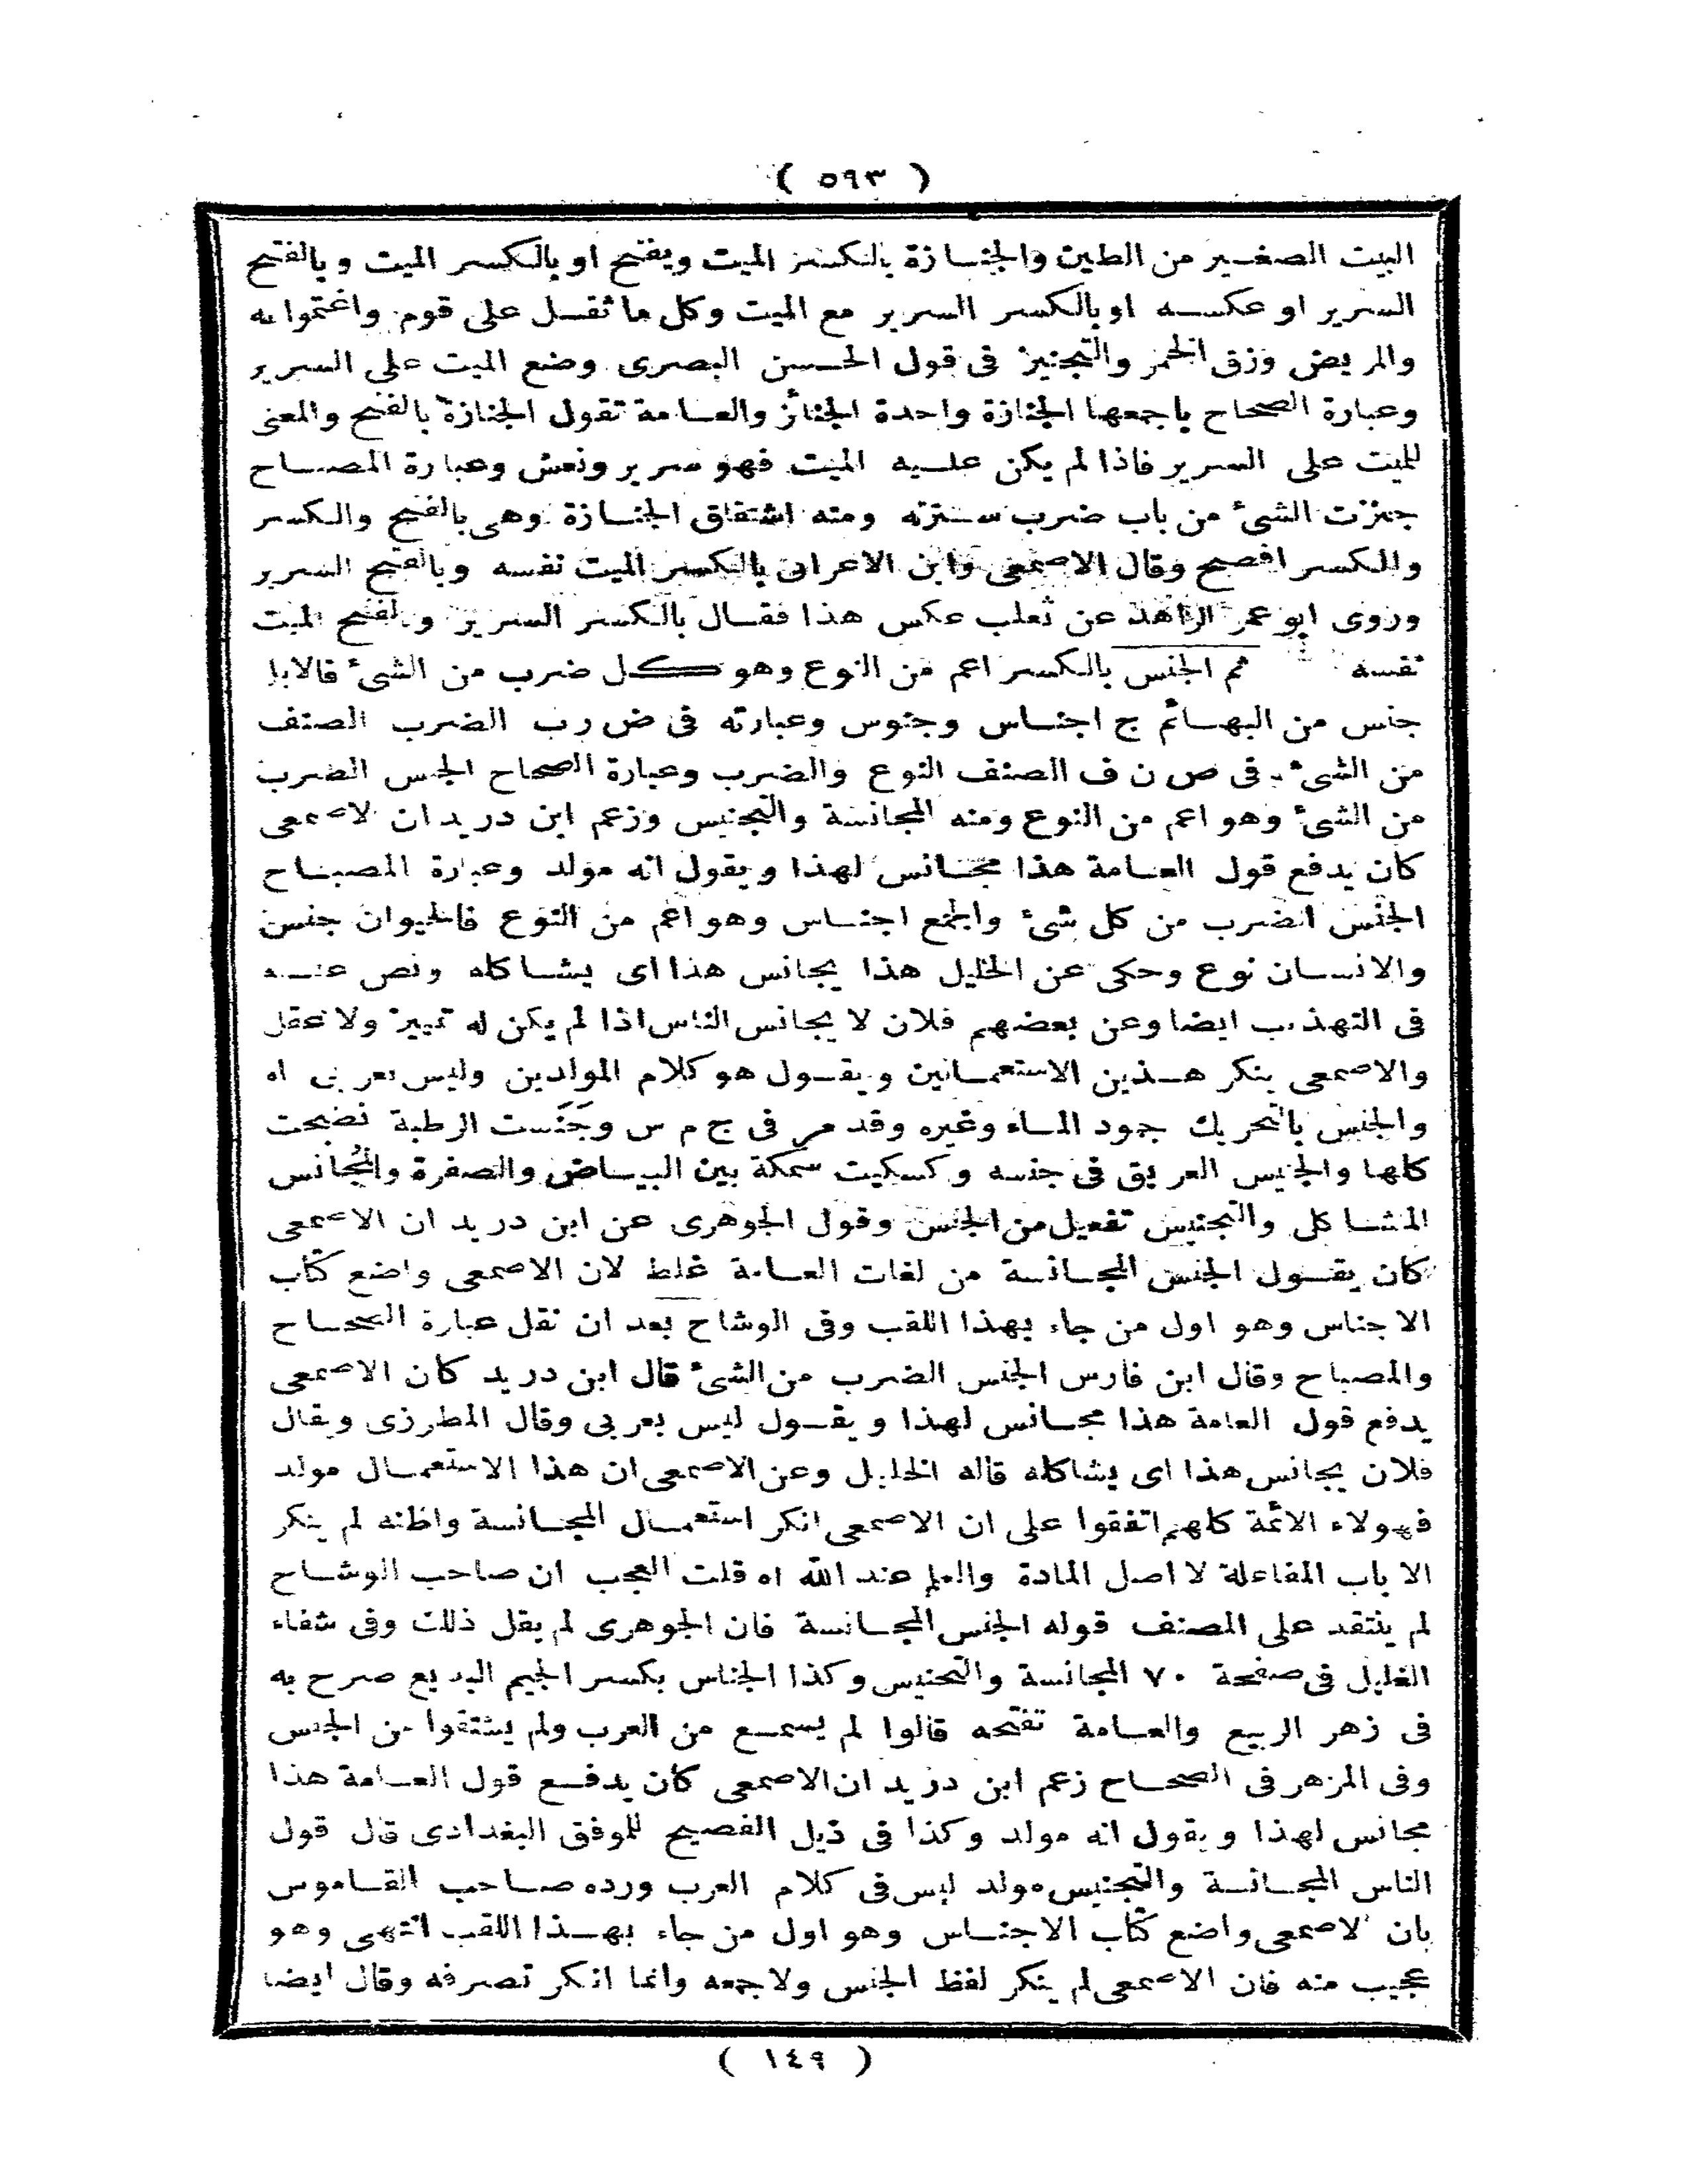 ( ٥٩٣ )
البيت الصغير من الطين والجنازة بالكسر الميت ويفتح او بالكسر الميت وبالفتح
السرير او عكسه او بالكسر السرير مع الميت وكل ما ثقل على قوم واغتموا به
والمريض وزق الخمر والتجنيز فى قول الحسن البصرى وضع الميت على السرير
وعبارة الصحاح باجمعها الجنازة واحدة الجنائز والعامة تقول الجنازة بالفتح والمعنى
للميت على السرير فاذا لم يكن عليه الميت فهو سرير ونعش وعبارة المصباح
جنزت الشئ من باب ضرب سترته ومنه اشتقاق الجنازة وهى بالفتح والكسر
والكسر افصح وقال الاصمعى وابن الاعرابى بالكسر الميت نفسه وبالفتح السرير
وروى ابو عمر الزاهد عن ثعلب عكس هذا فقال بالكسر السرير وبالفتح الميت
نفسه ثم الجنس بالكسر اعم من النوع وهو كل ضرب من الشئ فالابل
جنس من البهائم ج اجناس وجنوس وعبارته فى ض رب الضرب الصنف
من الشئ فى ص ن ف الصنف النوع والضرب وعبارة الصحاح الجنس الضرب
من الشئ وهو اعم من النوع ومنه المجانسة والتجنيس وزعم ابن دريد ان الاصمعى
كان يدفع قول العامة هذا مجانس لهذا ويقول انه مولد وعبارة المصباح
الجنس الضرب من كل شئ والجمع اجناس وهو اعم من النوع فالحيوان جنس
والانسان نوع وحكى عن الخليل هذا يجانس هذا اى يشاكله ونص عنه
فى التهذيب ايضا وعن بعضهم فلان لا يجانس الناس اذا لم يكن له تمييز ولا عقل
والاصمعى ينكر هذين الاستعمالين ويقول هو كلام المولدين وليس بعربى اه
والجنس بالتحريك جمود الماء وغيره وقد مر فى ج م س وجَنَست الرطبة نضجت
كلها والجنيس العريق فى جنسه وكسكيت سمكة بين البياض والصفرة والمُجانس
المشاكل والتجنيس تفعيل من الجنس وقول الجوهرى عن ابن دريد ان الاصمعى
كان يقول الجنس المجانسة من لغات العامة غلط لان الاصمعى واضع كتاب
الاجناس وهو اول من جاء بهذا اللقب وفى الوشاح بعد ان نقل عبارة الصحاح
والمصباح وقال ابن فارس الجنس الضرب من الشئ قال ابن دريد كان الاصمعى
يدفع قول العامة هذا مجانس لهذا ويقول ليس بعربى وقال المطرزى ويقال
فلان يجانس هذا اى يشاكله قاله الخليل وعن الاصمعى ان هذا الاستعمال مولد
فهولاء الائمة كلهم اتفقوا على ان الاصمعى انكر استعمال المجانسة واظنه لم ينكر
الا باب المفاعلة لا اصل المادة والعلم عند الله اه قلت العجب ان صاحب الوشاح
لم ينتقد على المصنف قوله الجنس المجانسة فان الجوهرى لم يقل ذلك وفى شفاء
الغليل فى صفحة ٧٠ المجانسة والتجنيس وكذا الجناس بكسر الجيم البديع صرح به
فى زهر الربيع والعامة تفتحه قالوا لم يسمع من العرب ولم يشتقوا من الجنس
وفى المزهر فى الصحاح زعم ابن دريد ان الاصمعى كان يدفع قول العامة هذا
مجانس لهذا ويقول انه مولد وكذا فى ذيل الفصيح للموفق البغدادى قال قول
الناس المجانسة والتجنيس مولد ليس فى كلام العرب ورده صاحب القاموس
بان الاصمعى واضع كتاب الاجناس وهو اول من جاء بهذا اللقب انتهى وهو
عجيب منه فان الاصمعى لم ينكر لفظ الجنس ولا جمعه وانما انكر تصرفه وقال ايضا
( ١٤٩ )